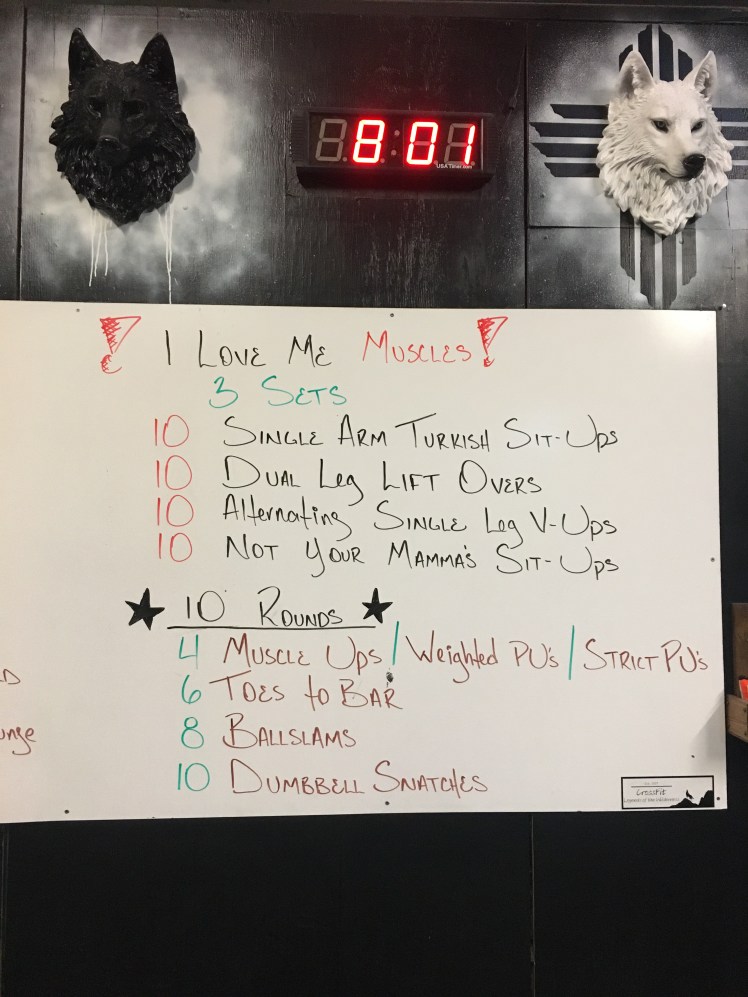 8:01
USA Timer.com
! I Love Me Muscles!
3 Sets
10 Single Arm Turkish Sit-Ups
10 Dual Leg Lift Overs
10 Alternating Single Leg V-Ups
10 Not Your Mamma's Sit-Ups
★ 10 Rounds ★
4 Muscle Ups / Weighted PU's / Strict PU's
6 Toes to Bar
unge
8 Ballslams
10 Dumbbell Snatches
CrossFit